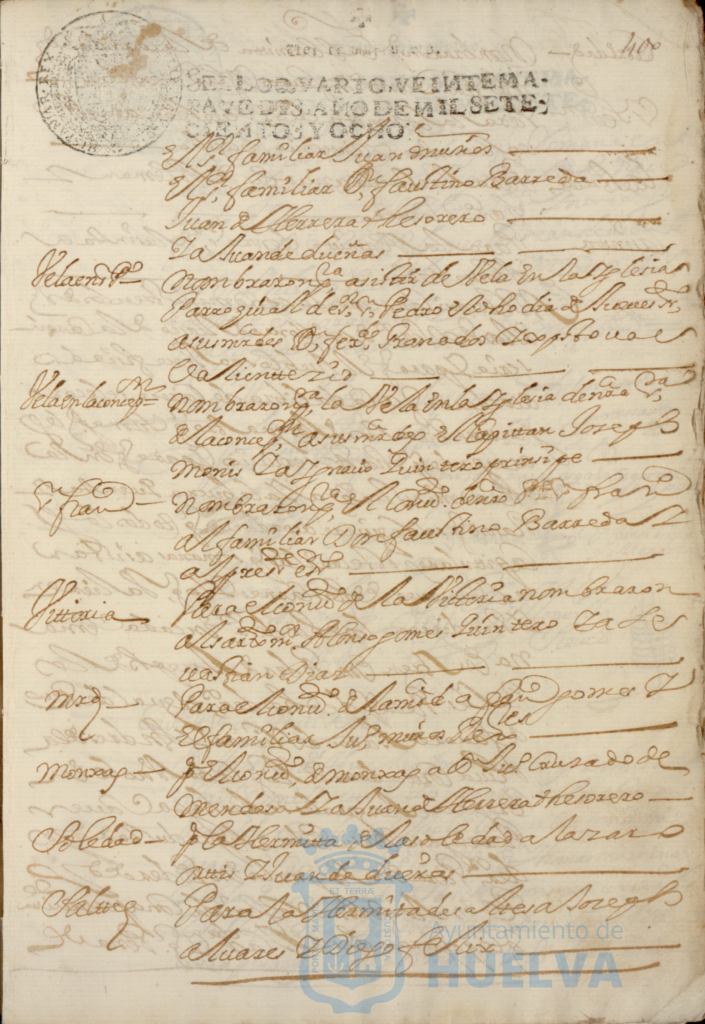 400
SELLO QVARTO, VEINTE MA-
RAVEDIS, AÑO DE MIL SETE-
CIENTOS Y OCHO
El familiar Juan muños
El familiar D. faustino Barreda
Juan de Herrera thesorero
Ya Juan de dueñas
Vela en sn Po
nombraron pa asistir de Vela en la Yglesia
Parroquial de sr Sn Pedro el
a sus mrdes D. ferdo Granados
Valiente
Vela en la concepon
nombraron pa la Vela en la Yglesia de nra sra
de la concepon a sus mrdes el Capittan Joseph
monis Y a Ygnacio Quintero prinsipe
Sn franco
nombraron pa el convto de nro Pe Sn franco
al familiar Don faustino Barreda Y
al preste essno
Vittoria
Para el convto de la Vittoria nombraron
al sarto mor Alonso gomes Quintero Y a Se
vastian Dias
Mrd
Para el convto de la mrd a franco gomes Y
El familiar Ju muños
Monxas
pa el convto de monxas a D Ju Cruzado de
Mendosa Y a Juan de Herrera thesorero
Soledad
pa la Hermitta de la soledad a lazaro
ortis Y Juan de dueñas
Saltes
Para la Hermita de saltes a Joseph
alvares Y Diego
Ayuntamiento de
HUELVA